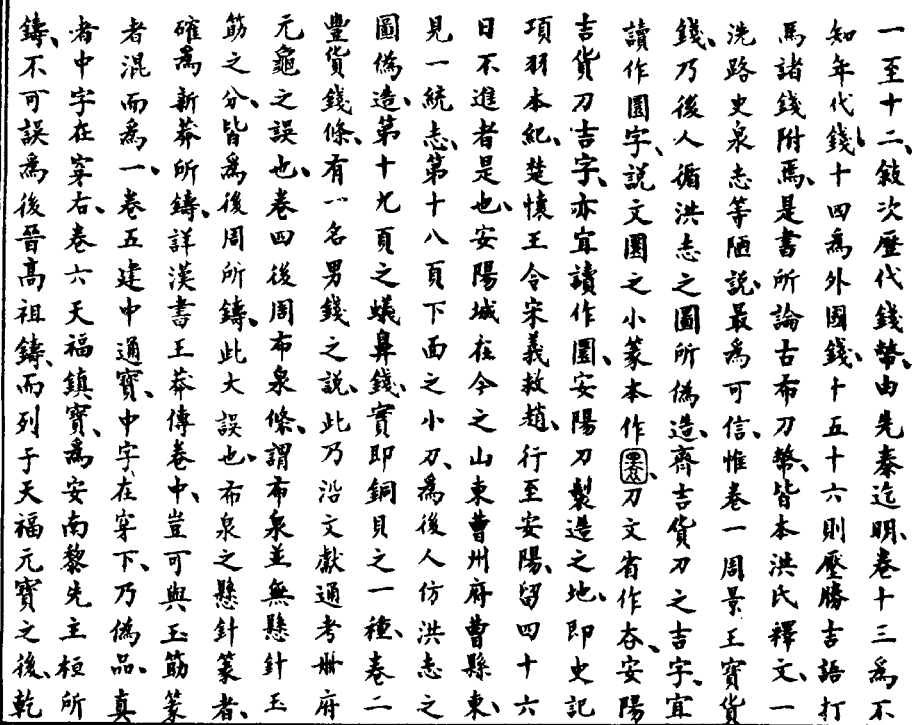 一至十二、敍次歷代錢幣、由先秦迄明、卷十三爲不
知年代錢、十四爲外國錢、十五十六則壓勝吉語打
馬諸錢附焉、是書所論古布刀幣、皆本洪氏釋文、一
洗路史泉志等陋說、最爲可信、惟卷一周景王寶貨
錢、乃後人循洪志之圖所僞造、齊吉貨刀之吉字、宜
讀作圜字、說文圜之小篆本作 刀文省作 安陽
吉貨刀吉字、亦宜讀作圜、安陽刀製造之地、即史記
項羽本紀、楚懷王令宋義救趙、行至安陽、留四十六
日不進者是也、安陽城在今之山東曹州府曹縣東、
見一統志、第十八頁下面之小刀、爲後人仿洪志之
圖僞造、第十九頁之蟻鼻錢、實即銅貝之一種、卷二
豐貨錢條、有一名男錢之說、此乃沿文獻通考册府
元龜之誤也、卷四後周布泉條、謂布泉並無懸針玉
筯之分、皆爲後周所鑄、此大誤也、布泉之懸針篆者、
確爲新莽所鑄、詳漢書王莽傳卷中、豈可與玉筯篆
者混而爲一、卷五建中通寶、中字在穿下、乃僞品、真
者中字在穿右、卷六天福鎮寶、爲安南黎先主桓所
鑄、不可誤爲後晉高祖鑄、而列于天福元寶之後、乾